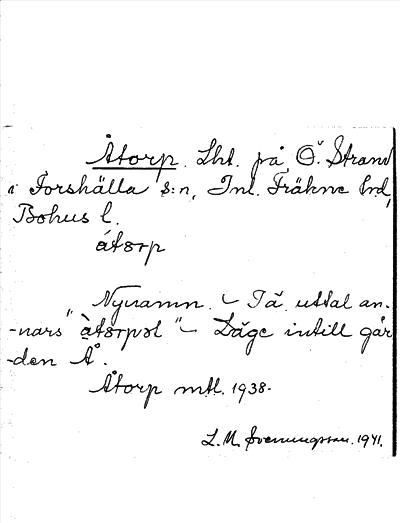 Åtorp. Lht. på Ö. Strand
i Forshälla s:n, Inl. Fräkne hd,
Bohus l.
åtorp
Nynamn. – Så uttal an-
-nars "åtorpət" – Läge intill går
-den Å.
Åtorp mtl. 1938.
L. M. Svenungsson. 1941.